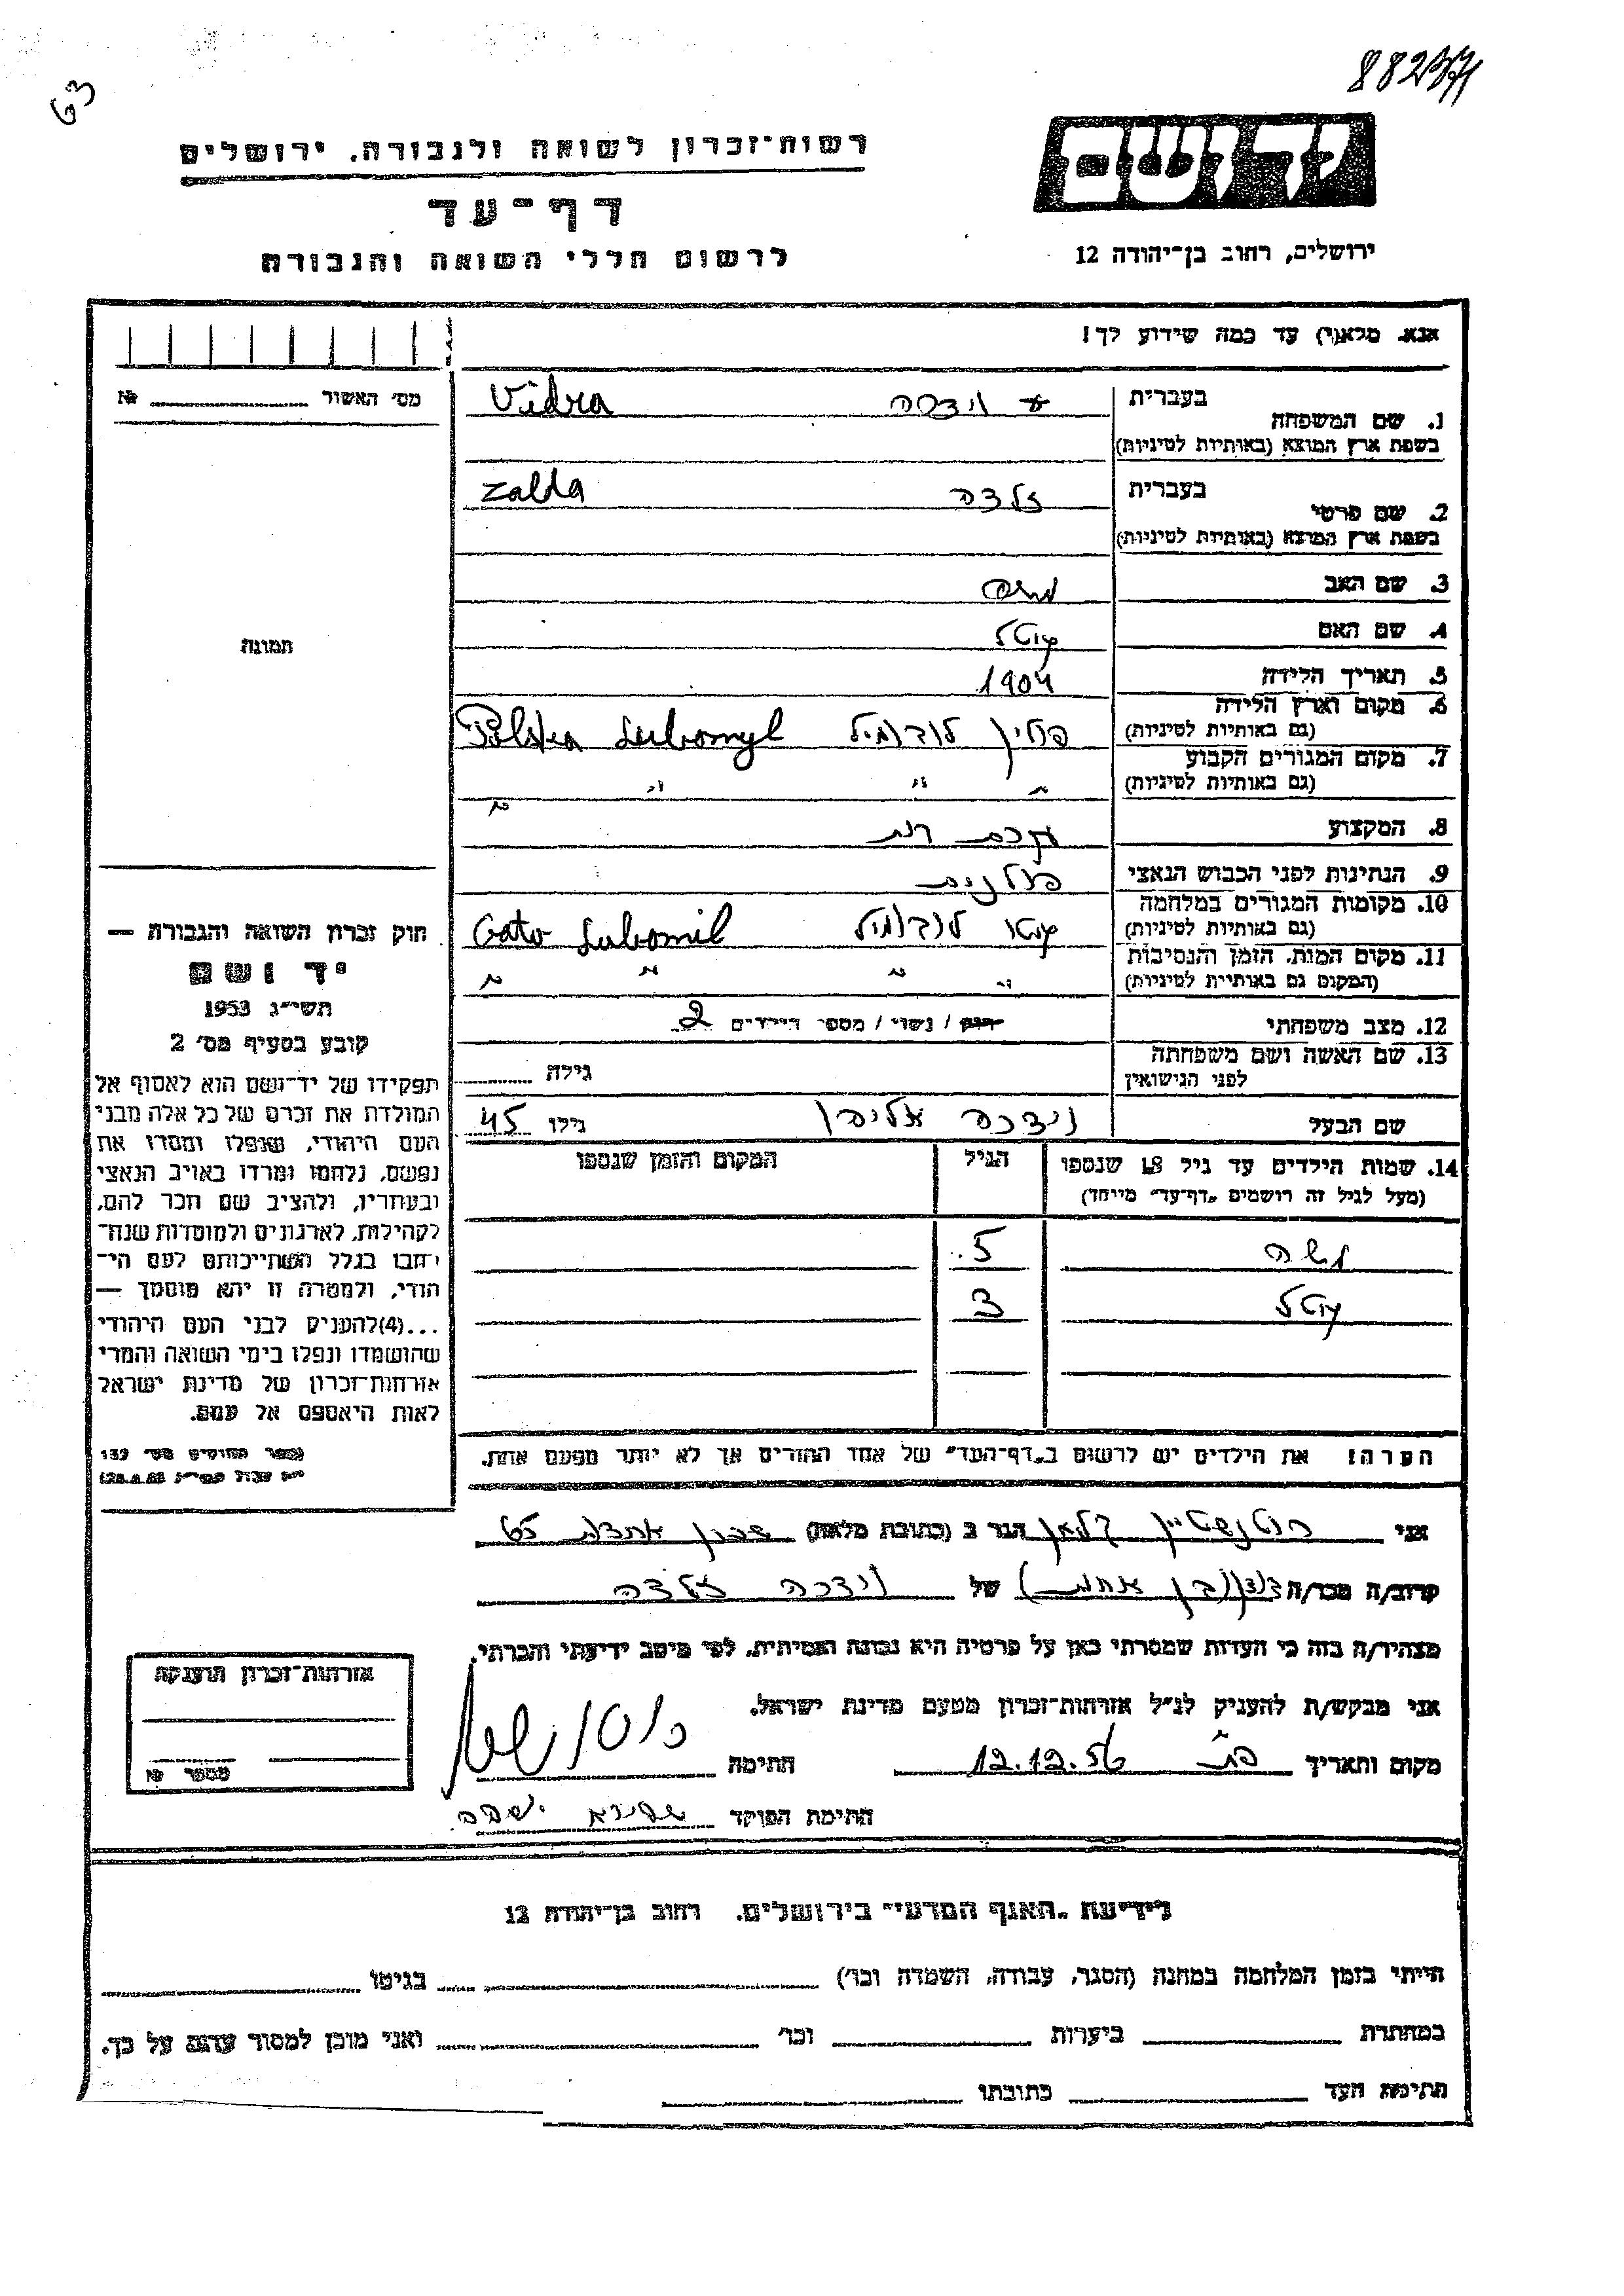 88237
63
יד ושם
ירושלים, רחוב בן־יהודה 12
רשות־זכרון לשואה ולגבורה, ירושלים
דף־עד
לרשום חללי השואה והגבורה
אנא, מלא(י) עד כמה שידוע לך!
מס׳ האשור № 
1. שם המשפחה בעברית וידרה Vidra
בשפת ארץ המוצא (באותיות לטיניות)
2. שם פרטי בעברית זלדה Zalda
בשפת ארץ המוצא (באותיות לטיניות)
3. שם האב
4. שם האם
5. תאריך הלידה 1904
6. מקום וארץ הלידה פולין לובומיל Polska Lubomyl
(גם באותיות לטיניות)
7. מקום המגורים הקבוע " " " "
(גם באותיות לטיניות)
8. המקצוע עקרת בית
9. הנתינות לפני הכבוש הנאצי פולנית
10. מקומות המגורים במלחמה גטו לובומיל Gato Lubomil
(גם באותיות לטיניות)
11. מקום המות, הזמן והנסיבות " " " "
(המקום גם באותיות לטיניות)
12. מצב משפחתי רווק / נשוי / מספר הילדים 2
13. שם האשה ושם משפחתה
לפני הנישואין גילה
שם הבעל וידרה גילו 45
14. שמות הילדים עד גיל 18 שנספו הגיל המקום והזמן שנספו
(מעל לגיל זה רושמים „דף־עד״ מיוחד)
משה 5
3
הערה! את הילדים יש לרשום ב„דף־העד״ של אחד ההורים אך לא יותר מפעם אחת.
תמונה
חוק זכרון השואה והגבורה —
יד ושם
תשי״ג 1953
קובע בסעיף מס׳ 2
תפקידו של יד־ושם הוא לאסוף אל
המולדת את זכרם של כל אלה מבני
העם היהודי, שנפלו ומסרו את
נפשם, נלחמו ומרדו באויב הנאצי
ובעוזריו, ולהציב שם וזכר להם,
לקהילות, לארגונים ולמוסדות שנח־
רבו בגלל השתייכותם לעם הי־
הודי, ולמטרה זו יהא מוסמך —
...(4)להעניק לבני העם היהודי
שהושמדו ונפלו בימי השואה והמרי
אזרחות־זכרון של מדינת ישראל
לאות היאספם אל עמם.
אני רוטנשטיין הגר ב (כתובת מלאה)
קרוב/ה מכר/ה (בן אחות) של וידרה זלדה
מצהיר/ה בזה כי העדות שמסרתי כאן על פרטיה היא נכונה ואמיתית, לפי מיטב ידיעתי והכרתי.
אני מבקש/ת להעניק לנ״ל אזרחות־זכרון מטעם מדינת ישראל.
מקום ותאריך 12.12.56 חתימה
חתימת הפוקד
אזרחות־זכרון הוענקה
מספר №
לידיעת „האגף המדעי״ בירושלים, רחוב בן־יהודה 12
הייתי בזמן המלחמה במחנה (הסגר, עבודה, השמדה וכו׳) בגיטו
במחתרת ביערות וכו׳ ואני מוכן למסור עדות על כך.
חתימת העד כתובתו